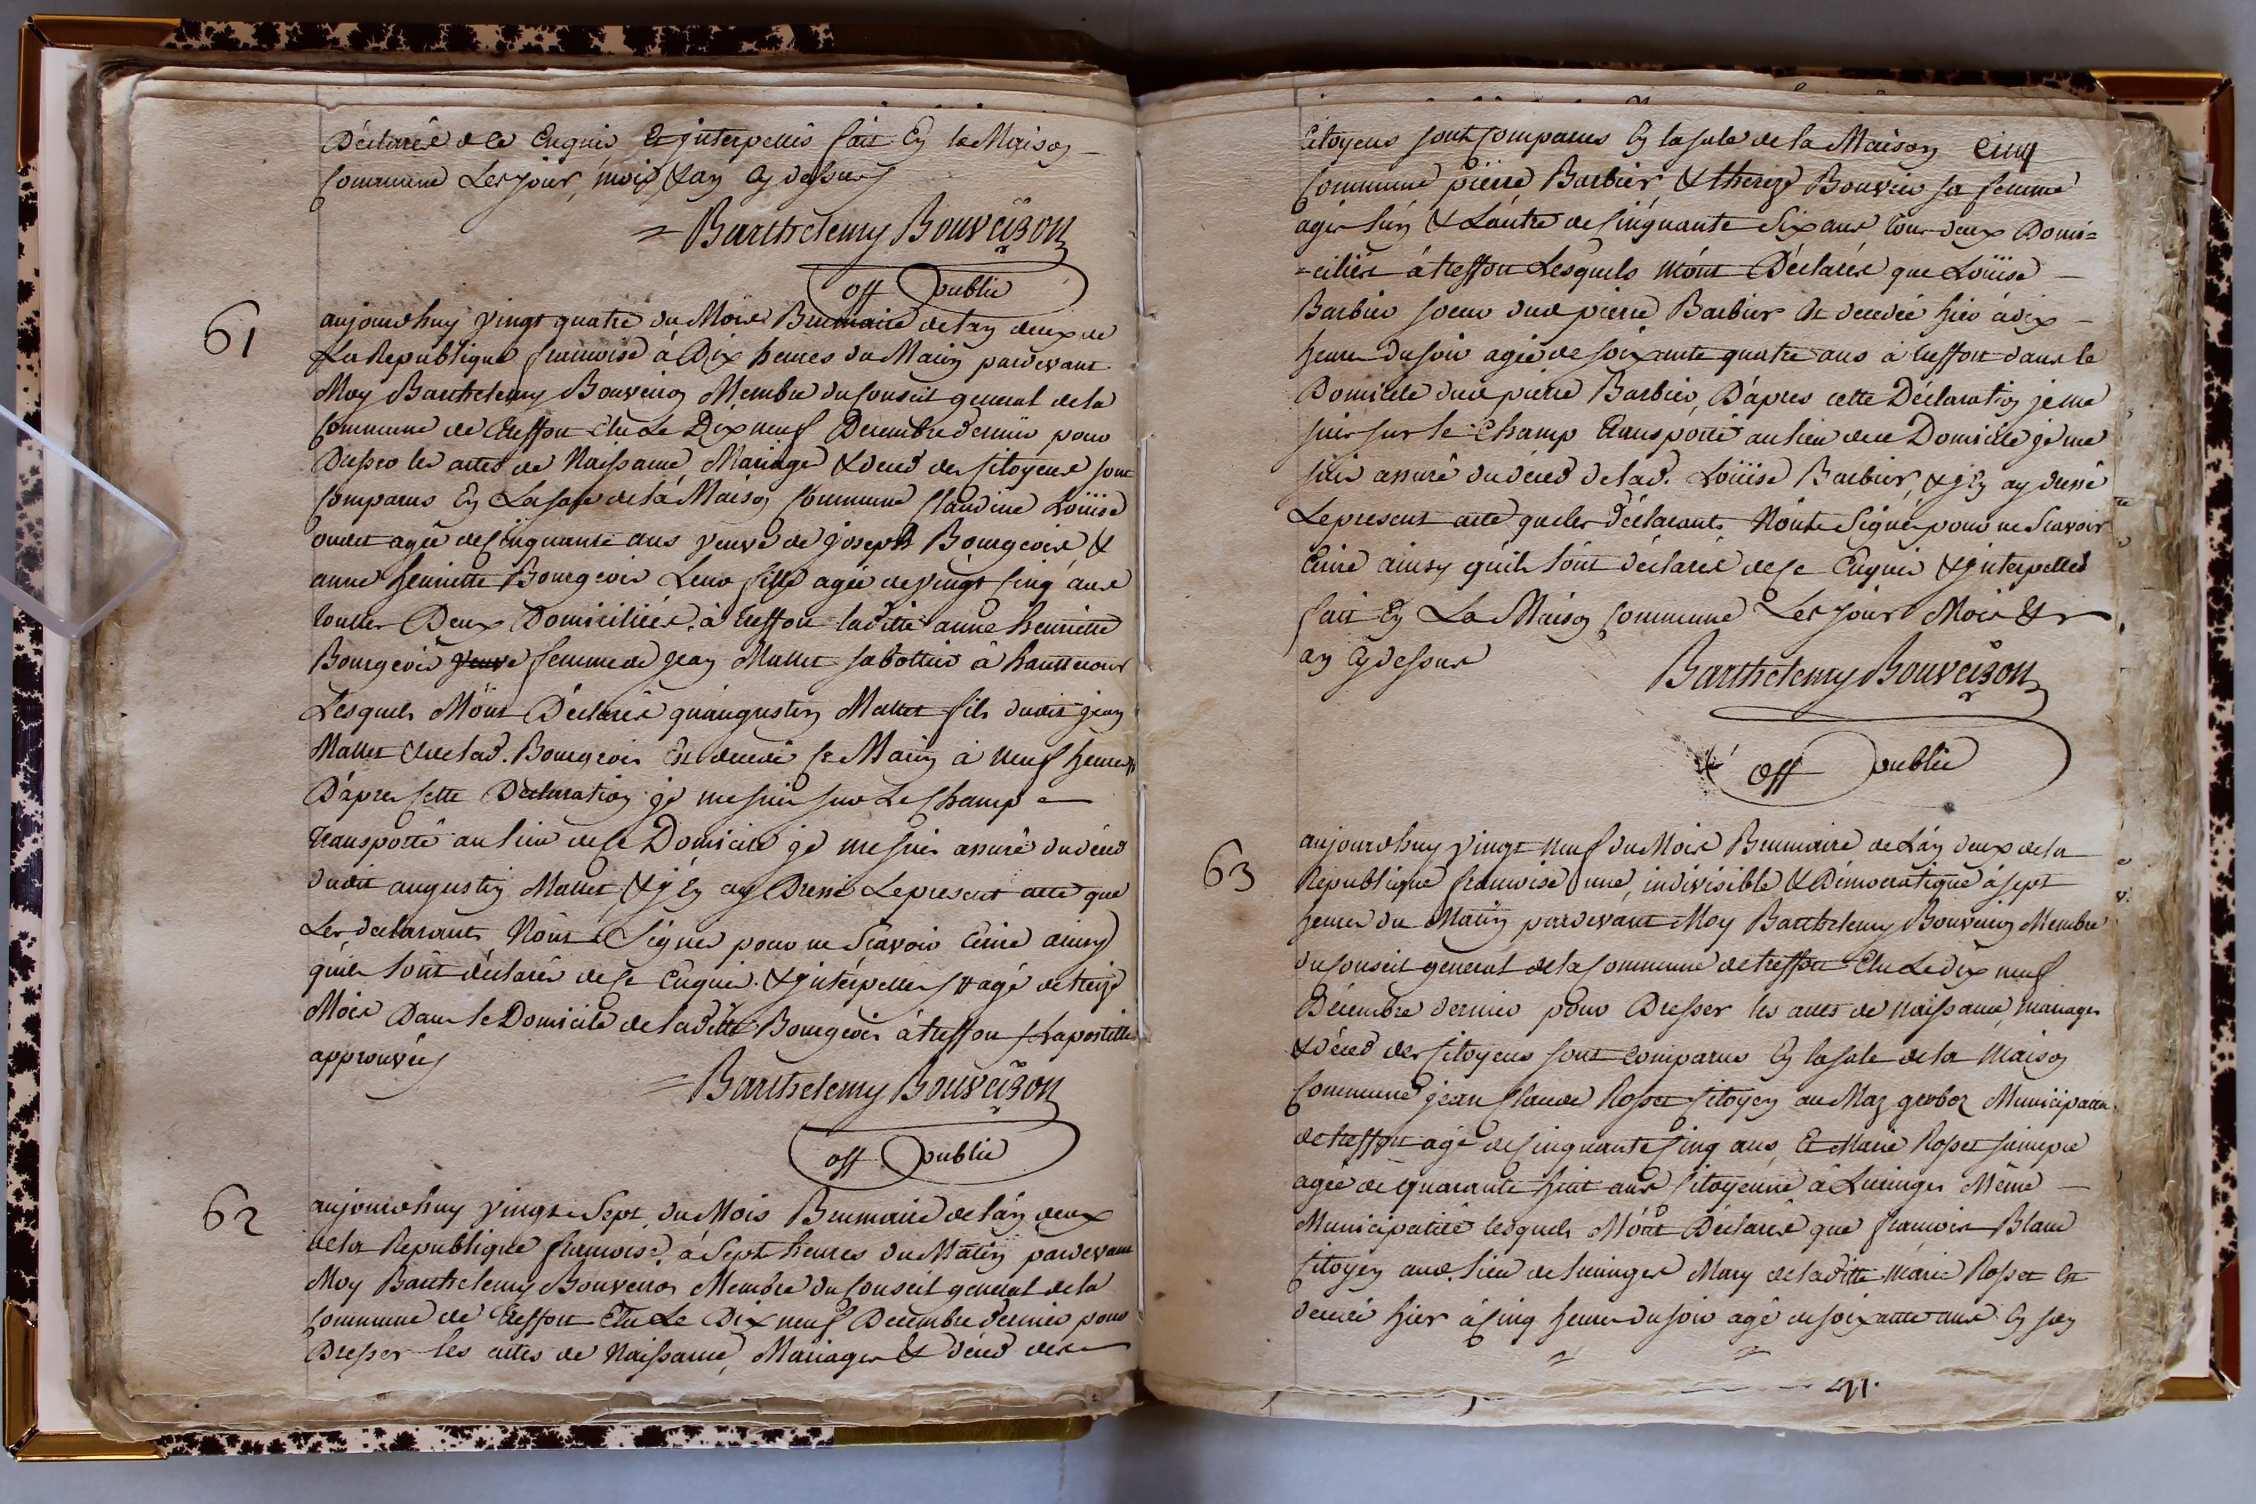 Déclarés de ce Enquis Et jnterpellés fait En la Maison
Commune Les jour, mois & an Cy dessus
= Barthelemy Bouveiron
off public
61
aujourdhuy vingt quatre du Mois Brumaire de lan deux de
La Republique francoise à Dix heures du Matin pardevant
Moy Barthelemy Bouveiron Membre du Conseil general de la
Commune de treffort élu Le Dix neuf Decembre dernier pour
Dresser les actes de Naissance Mariage & deced des Citoyens sont
Comparus En La sale de la Maison Commune Claudine Loüise
oudet agée de Cinquante ans veuve de joseph Bourgeois &
anne henriette Bourgeois Leur fille agée de vingt Cinq ans
toutes Deux Domiciliées à treffort laditte anne henriette
Bourgeois veuve femme de jean Mallet sabottier à hautecour
Lesquels M'ont Déclarés qu'augustin Mallet fils dudit jean
Mallet & de lad. Bourgeois Est decedé ce Matin à neuf heures
D'apres Cette Declaration je me suis sur Le Champ
transporté au lieu de ce Domicile je me suis assuré du déced
dudit augustin Mallet & j'En ay Dressé Le present acte que
Les declarants N'ont Signés pour ne Scavoir Ecrire ainsy
qu'ils L'ont déclarés de ce Enquis & jnterpellés # agé de treize
Mois Dans le Domicile de laditte Bourgeois à treffort # Lapostille
approuvée
= Barthelemy Bouveiron
off public
62
aujourdhuy vingt Sept du Mois Brumaire de lan deux
de la Republique francoise à Sept heures du Matin pardevant
Moy Barthelemy Bouveiron Membre du Conseil general de la
Commune de treffort Elu Le Dix neuf Decembre dernier pour
Dresser les actes de Naissance, Mariages & déced des
Citoyens sont Comparus En la sale de la Maison Cinq
Commune pierre Barbier & thereze Bouvier sa femme
agés L'un & L'autre de Cinquante Six ans tous deux Domi=
=ciliés à treffort Lesquels M'ont Déclarés que Loüise
Barbier soeur dud pierre Barbier Est decedée hier à dix
heures du soir agée de soixante quatre ans à treffort dans le
Domicile dud pierre Barbier, D'apres cette Déclaration je me
suis sur le Champ transporté au lieu de ce Domicile je me
suis assuré du déced de lad. Loüise Barbier, & j'En ay dressé
Le present acte que les déclarants N'ont Signés pour ne Scavoir
Ecrire ainsy qu'ils L'ont déclarés de ce Enquis & jnterpellés
fait En La Maison Commune Les jour Mois &
an Cy dessus
Barthelemy Bouveiron
off public
63
aujourdhuy vingt neuf du Mois Brumaire de Lan deux de la
Republique francoise une, indivisible & Démocratique à sept
heures du Matin pardevant Moy Barthelemy Bouveiron Membre
du Conseil general de la Commune de treffort Elu Le dix neuf
Décembre dernier pour Dresser les actes de naissance, mariages
& déced des Citoyens sont Comparus En la sale de la Maison
Commune jean Claude Rosset Citoyen au Maz gerboz Municipalité
de treffort agé de Cinquante Cinq ans, Et Marie Rosset
agée de quarante huit ans Citoyenne à Lucinges Même
Municipalité lesquels M'ont Déclarés que francois Blanc
Citoyen aud. lieu de Lucinges Mary de laditte Marie Rosset Est
decedé hier à Cinq heures du soir agé de soixante ans En son